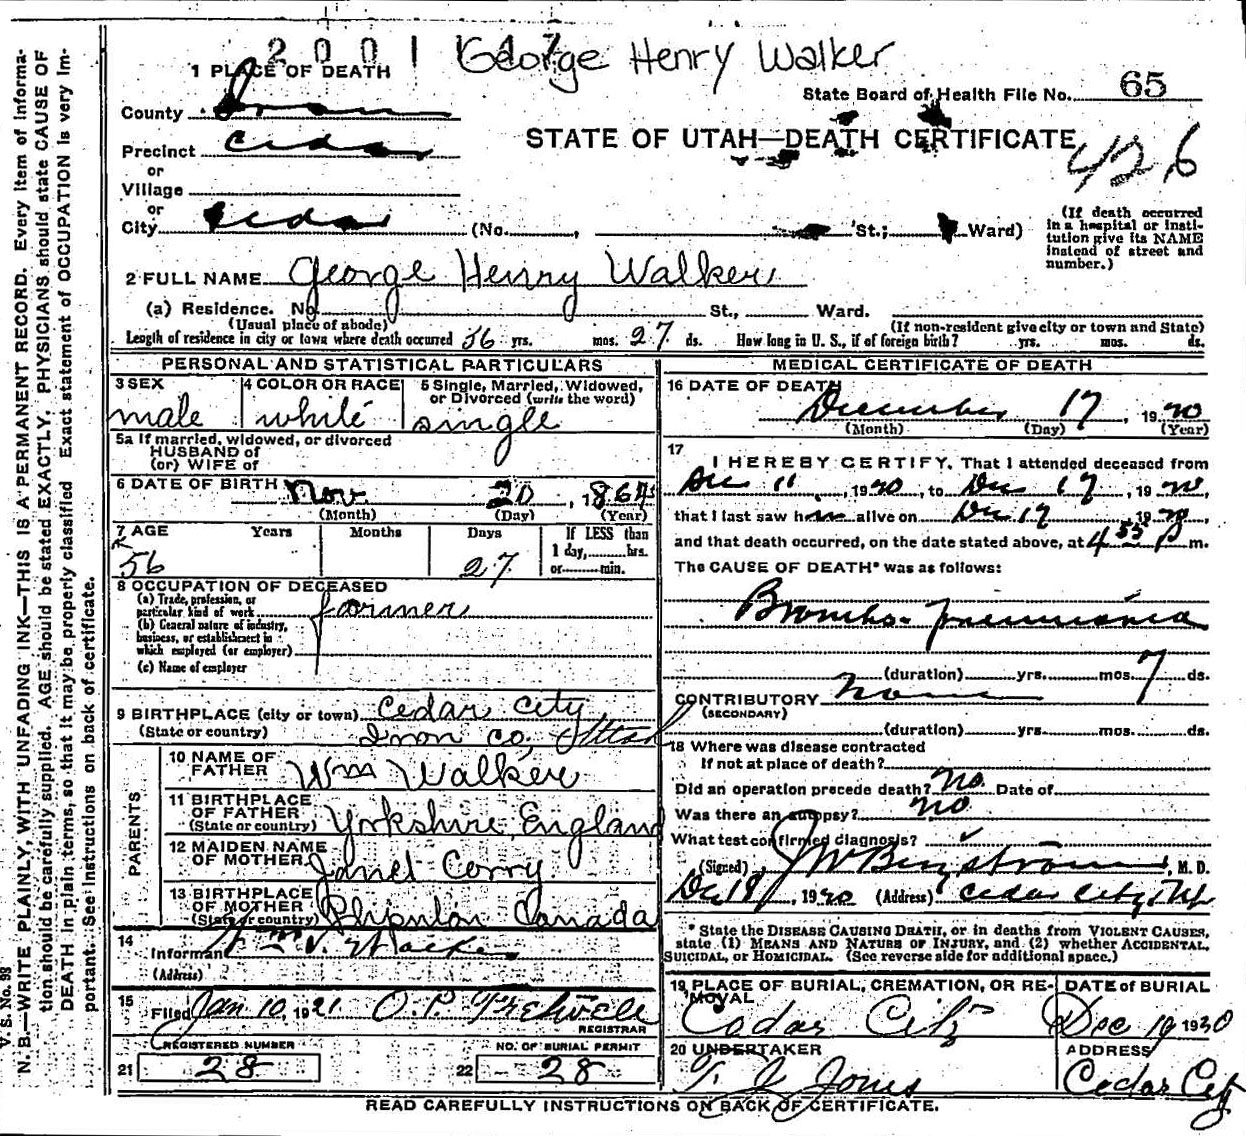 2001 147 George Henry Walker
1 PLACE OF DEATH
65
State Board of Health File No.
County Iron
STATE OF UTAH—DEATH CERTIFICATE
426
Precinct Cedar
or
Village
or
City Cedar (No. , St.; Ward)
(If death occurred in a hospital or institution give its NAME instead of street and number.)
2 FULL NAME George Henry Walker
(a) Residence. No. St., Ward.
(Usual place of abode) (If non-resident give city or town and State)
Length of residence in city or town where death occurred 56 yrs. mos. 27 ds. How long in U. S., if of foreign birth? yrs. mos. ds.
PERSONAL AND STATISTICAL PARTICULARS
3 SEX
male
4 COLOR OR RACE
white
5 Single, Married, Widowed, or Divorced (write the word)
single
5a If married, widowed, or divorced
HUSBAND of
(or) WIFE of
6 DATE OF BIRTH Nov. 20, 1864
(Month) (Day) (Year)
7 AGE Years Months Days If LESS than
1 day, hrs.
or min.
56 27
8 OCCUPATION OF DECEASED
(a) Trade, profession, or
particular kind of work farmer
(b) General nature of industry,
business, or establishment in
which employed (or employer)
(c) Name of employer
9 BIRTHPLACE (city or town) Cedar City
(State or country) Iron Co, Utah
PARENTS
10 NAME OF FATHER Wm Walker
11 BIRTHPLACE OF FATHER (State or country) Yorkshire, England
12 MAIDEN NAME OF MOTHER Janet Corry
13 BIRTHPLACE OF MOTHER (State or country) Canada
14
Informant
(Address)
15
Filed Jan 10, 1921. O. P.
REGISTRAR
REGISTERED NUMBER
21 28
NO. OF BURIAL PERMIT
22 28
MEDICAL CERTIFICATE OF DEATH
16 DATE OF DEATH
December 17, 1920
(Month) (Day) (Year)
17
I HEREBY CERTIFY, That I attended deceased from
Dec 11, 1920, to Dec 17, 1920,
that I last saw him alive on Dec 17, 1920,
and that death occurred, on the date stated above, at 4 55 P m.
The CAUSE OF DEATH* was as follows:
Broncho-pneumonia
(duration) yrs. mos. 7 ds.
CONTRIBUTORY None
(SECONDARY)
(duration) yrs. mos. ds.
18 Where was disease contracted
If not at place of death?
Did an operation precede death? No. Date of
Was there an autopsy? no
What test confirmed diagnosis?
(Signed) J W Bergstrom, M. D.
Dec 18, 1920 (Address) Cedar City, Ut
* State the DISEASE CAUSING DEATH, or in deaths from VIOLENT CAUSES,
state (1) MEANS AND NATURE OF INJURY, and (2) whether ACCIDENTAL,
SUICIDAL, or HOMICIDAL. (See reverse side for additional space.)
19 PLACE OF BURIAL, CREMATION, OR REMOVAL
Cedar City
DATE of BURIAL
Dec 19 1920
20 UNDERTAKER
T J Jones
ADDRESS
Cedar City
READ CAREFULLY INSTRUCTIONS ON BACK OF CERTIFICATE.
V. S. No. 98
N. B.—WRITE PLAINLY, WITH UNFADING INK—THIS IS A PERMANENT RECORD. Every item of informa-
tion should be carefully supplied. AGE should be stated EXACTLY. PHYSICIANS should state CAUSE OF
DEATH in plain terms, so that it may be properly classified. Exact statement of OCCUPATION is very im-
portant. See instructions on back of certificate.